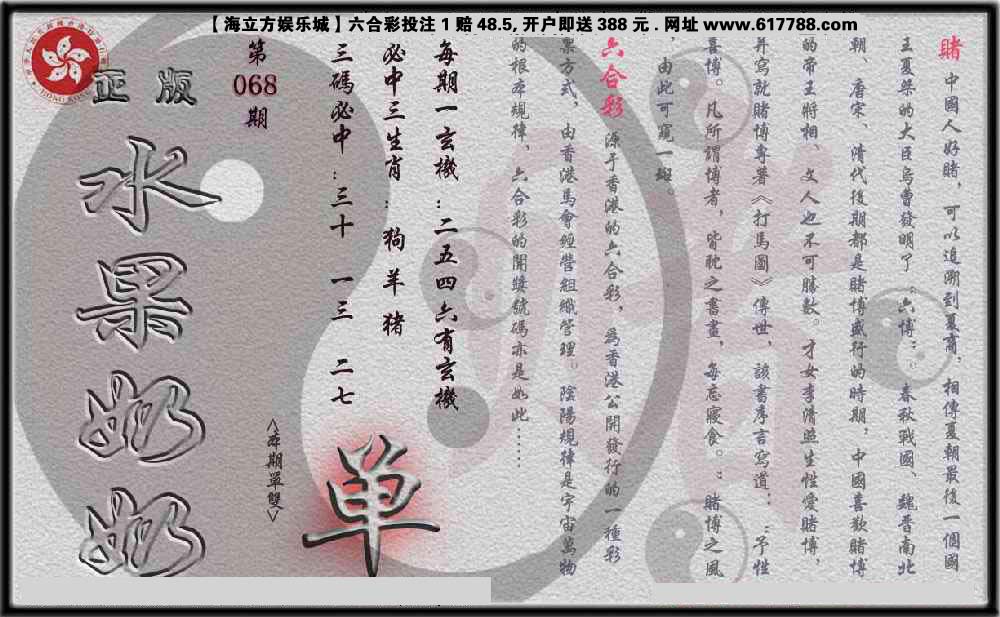 【海立方娱乐城】六合彩投注1赔48.5,开户即送388元.网址www.617788.com
賭 中國人好賭，可以追溯到夏商，相傳夏朝最後一個國
王夏桀的大臣烏曹發明了“六博”，春秋戰國、魏晋南北
朝、唐宋、清代後期都是賭博盛行的時期，中國喜歡賭博
的帝王將相、文人也不可勝數。才女李清照生性愛賭博，
并寫就賭博專著《打馬圖》傳世，該書序言寫道：“予性
喜博。凡所謂博者，皆耽之晝畫，每忘寢食。”賭博之風
，由此可窺一斑。
六合彩 源于香港的六合彩，為香港公開發行的一種彩
票方式，由香港馬會經營組織管理。陰陽規律是宇宙萬物
的根本規律，六合彩的開獎號碼亦是如此……
每期一玄機：二五四六有玄機
必中三生肖：狗羊猪
三碼必中：三十 一三 二七
第
068
期
<本期單雙>
单
正版
水果奶奶